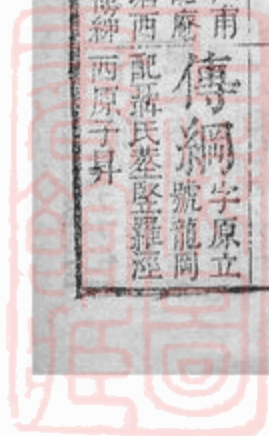 甫
傳綱 字原立
號龍岡
西 配蔣氏葬堅羅涇
西原子昇